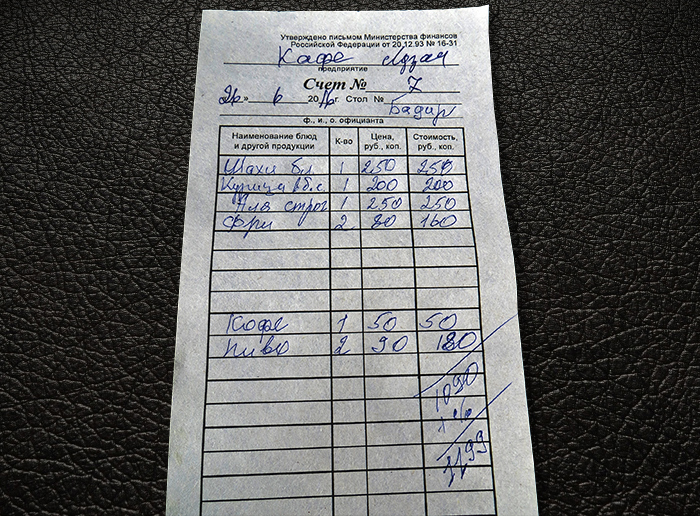 Утверждено письмом Министерства финансов
Российской Федерации от 20.12.93 № 16-31
Кафе Лдзаа
предприятие
Счет № 7
26 » 6 2016 г. Стол №
Бадир
ф., и., о. официанта
Наименование блюд и другой продукции К-во Цена, руб., коп. Стоимость, руб., коп.
1 250 250
Курица 1 200 200
строг 1 250 250
Фри 2 80 160
Кофе 1 50 50
Пиво 2 90 180
1090
1199